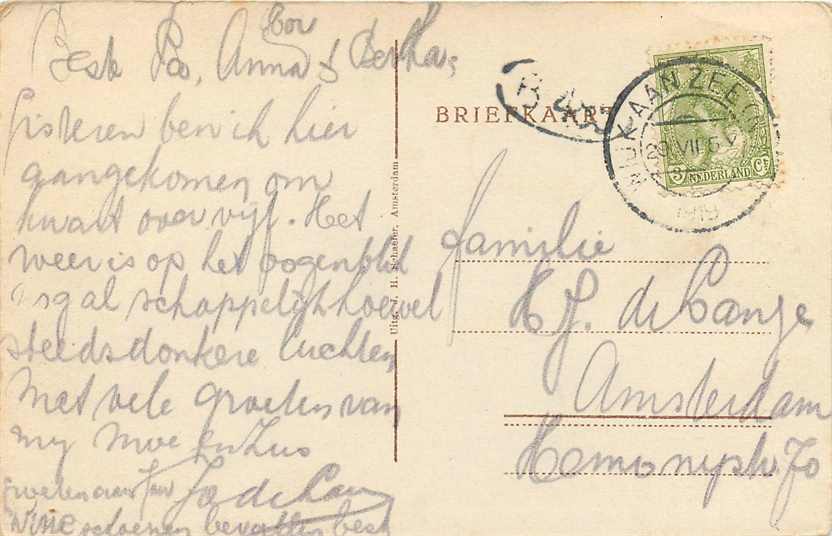 Cor
Beste Pa, Anna & Bertha,
Gisteren ben ik hier
aangekomen om
kwart over vijf. Het
weer is op het oogenblik
nogal schappelijk hoewel
steeds donkere luchten
Met vele groeten van
my Moe en Zus
groeten aan Jo de Lan
Witte schoenen bevallen best
Uitg. J. H. Schaefer, Amsterdam
BRIEFKAART
B 45
WIJK AAN ZEE
29 VII 6-7V
1919
3 NEDERLAND Ct
familie
H J. de Lange
Amsterdam
Hemonystr. 70